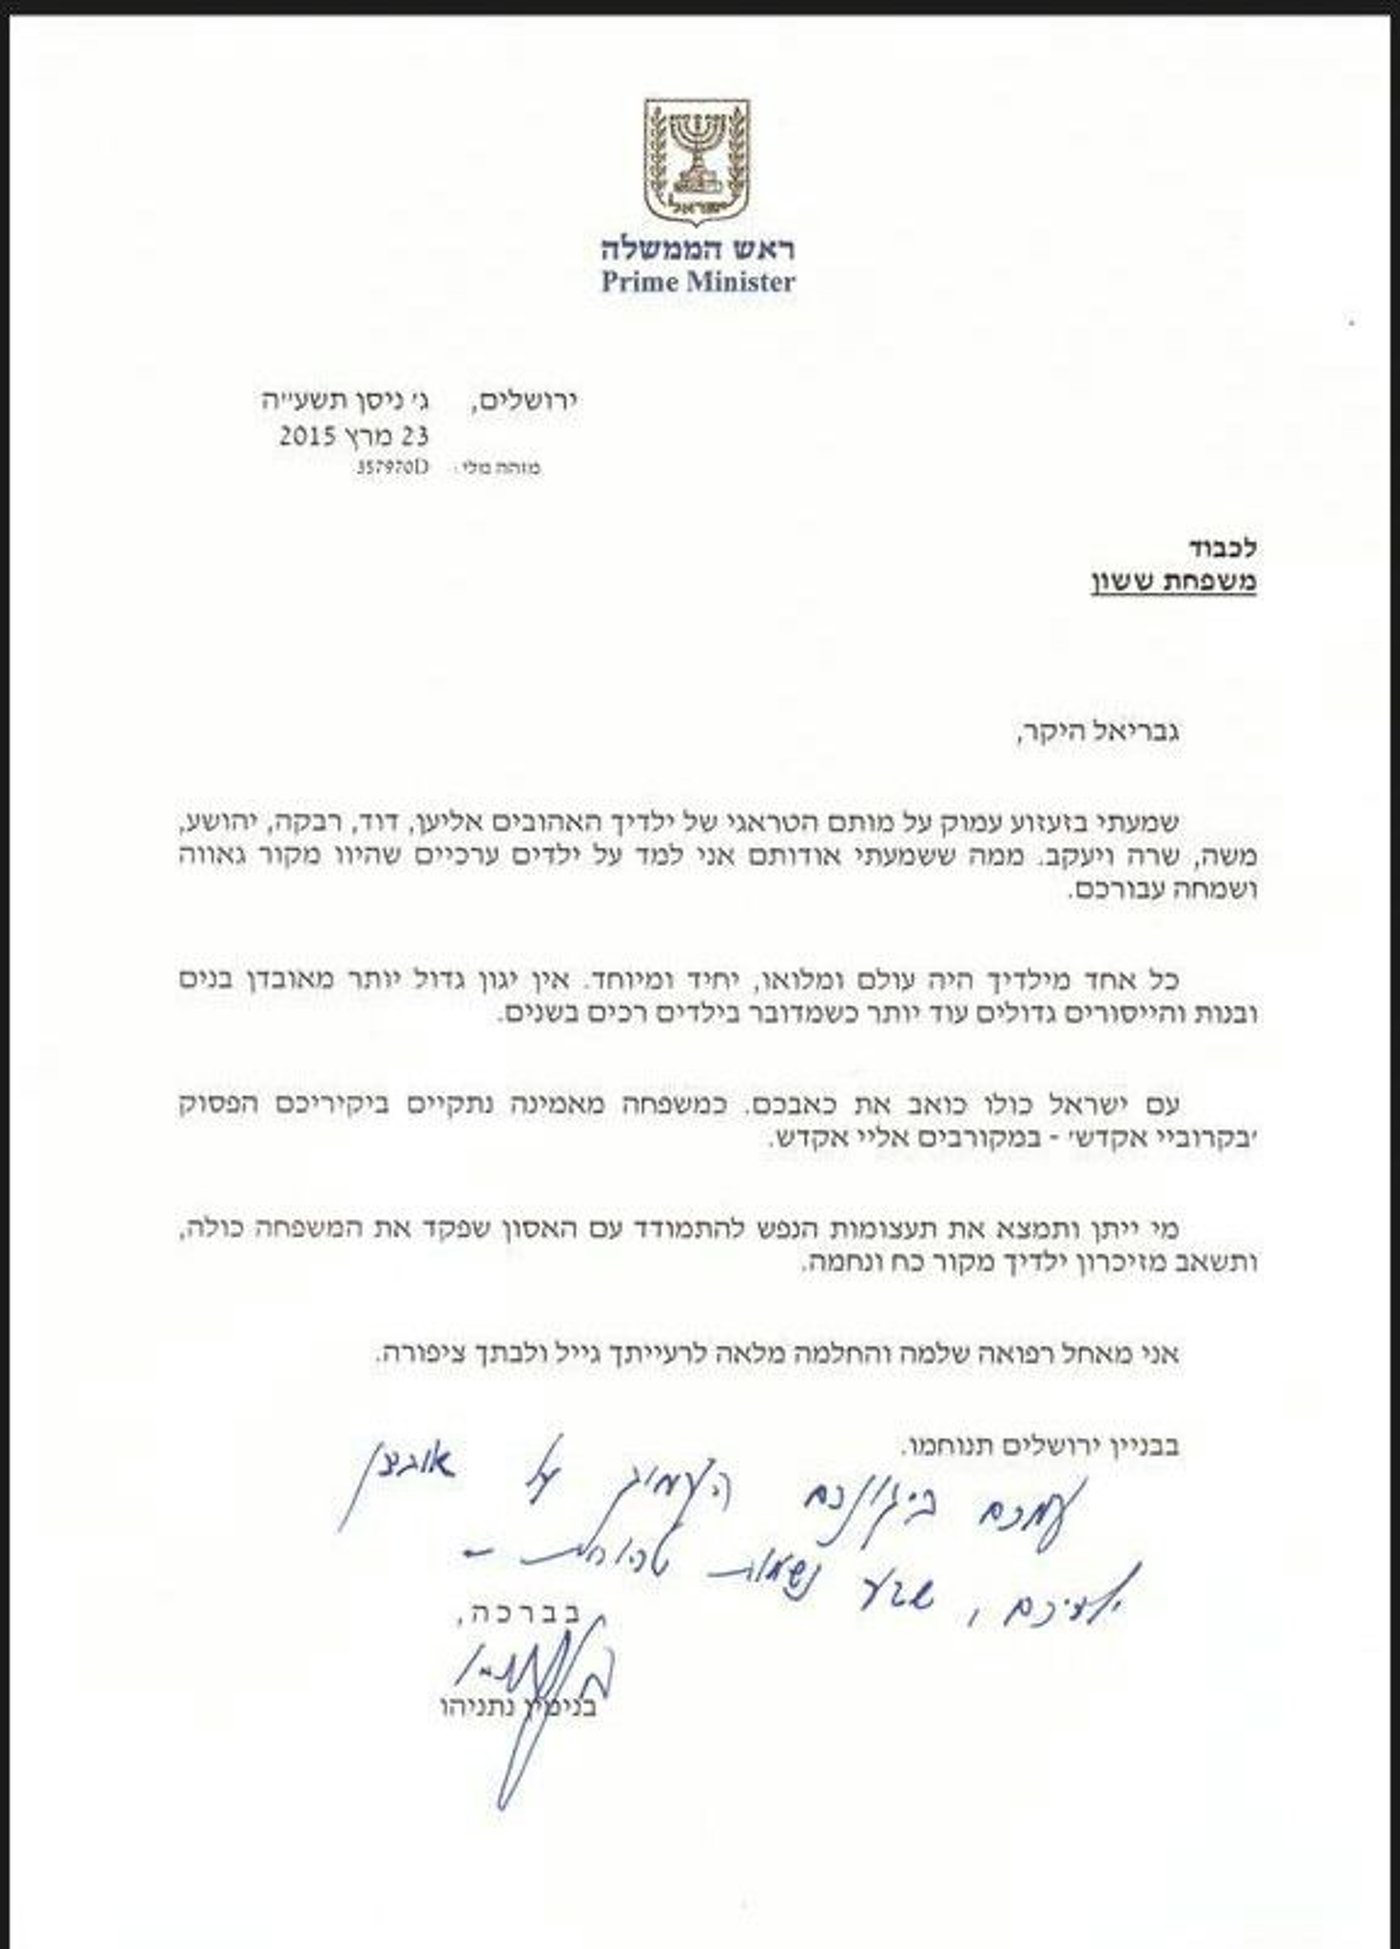 ישראל
ראש הממשלה
Prime Minister
ירושלים, ג׳ ניסן תשע״ה
23 מרץ 2015
357970D
לכבוד
משפחת ששון
גבריאל היקר,
שמעתי בזעזוע עמוק על מותם הטראגי של ילדיך האהובים אליען, דוד, רבקה, יהושע,
משה, שרה ויעקב. ממה ששמעתי אודותם אני למד על ילדים ערכיים שהיוו מקור גאווה
ושמחה עבורכם.
כל אחד מילדיך היה עולם ומלואו, יחיד ומיוחד. אין יגון גדול יותר מאובדן בנים
ובנות והייסורים גדולים עוד יותר כשמדובר בילדים רכים בשנים.
עם ישראל כולו כואב את כאבכם. כמשפחה מאמינה נתקיים ביקיריכם הפסוק
׳בקרוביי אקדש׳ - במקורבים אליי אקדש.
מי ייתן ותמצא את תעצומות הנפש להתמודד עם האסון שפקד את המשפחה כולה,
ותשאב מזיכרון ילדיך מקור כח ונחמה.
אני מאחל רפואה שלמה והחלמה מלאה לרעייתך גייל ולבתך ציפורה.
בבניין ירושלים תנוחמו.
עמכם ביגונכם העמוק על אובדן
ילדיכם, שבע נשמות טהורות -
בברכה,
בנימין נתניהו